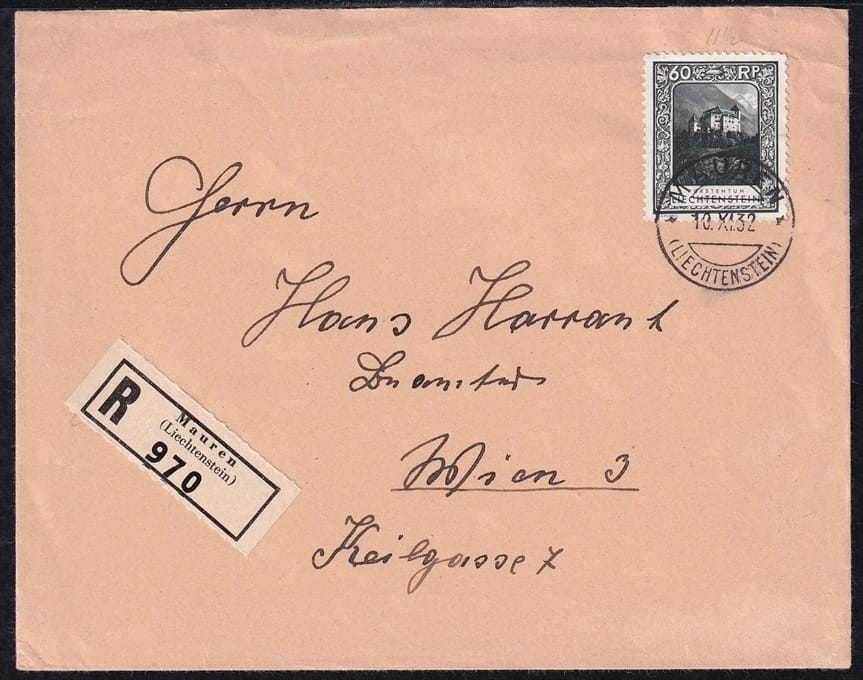 11 ½
60 RP.
FÜRSTENTUM
LIECHTENSTEIN
MAUREN
10.XI.32
(LIECHTENSTEIN)
Herrn
Hans Harrant
Wien 3
Keilgasse 7
R
Mauren
(Liechtenstein)
970